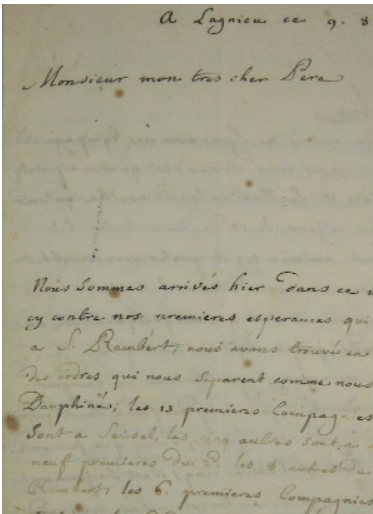 A Lagnieu ce 9. 8
Monsieur mon tres cher Pere
Nous sommes arrivés hier dans ce
cy contre nos premieres esperances qui
a S. Rambert, nous avons trouvés en
des ordres qui nous separent comme nous
Dauphiné; les 13 premieres Compagnies
sont a Seissel, les cinq autres sont a
neuf premieres du 2d. les 8 autres du
Rambert: les 6. premieres Compagnies